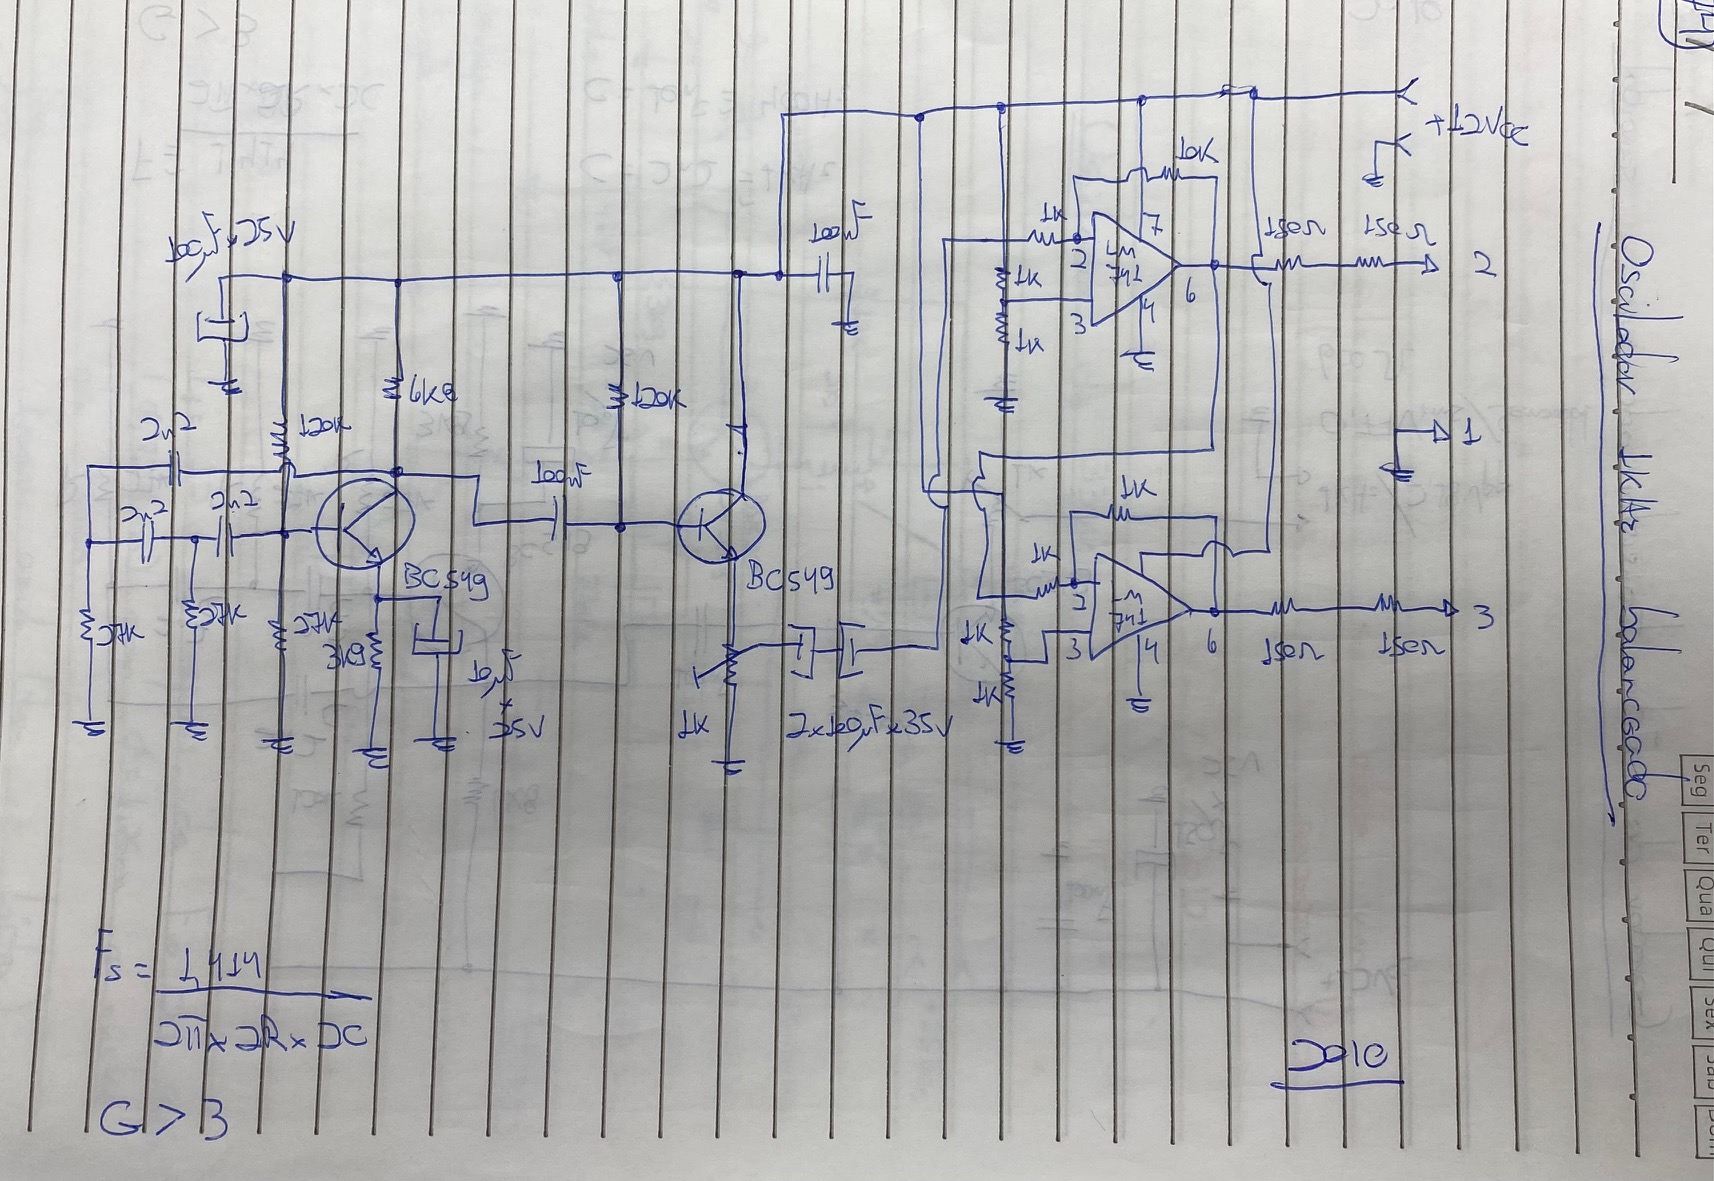 Oscilador 1kHz balanceado
+12Vcc
100µF x 25V
2n2
2n2
2n2
120K
6K8
120K
100nF
100nF
27K
27K
27K
3K9
BC549
BC549
10µF
x
25V
1K
2x100µFx35V
10K
1K
1K
1K
LM
741
2
3
7
4
6
150Ω
150Ω
2
1
1K
1K
1K
1K
LM
741
2
3
4
6
150Ω
150Ω
3
Fs = 1,414
2π x 2R x 2C
G > 3
2010
Seg
Ter
Qua
Qui
Sex
Sab
Dom